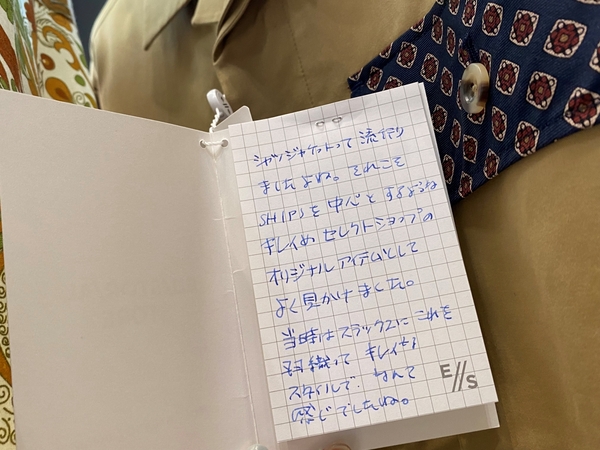 シャツジャケットって 流行り
ましたよね。それこそ
SHIPSを中心とするような
キレイめ セレクトショップの
オリジナル アイテムとして
よく見かけました。
当時はスラックスに これを
羽織って キレイな
スタイルで、なんて
感じでしたね。
E//S